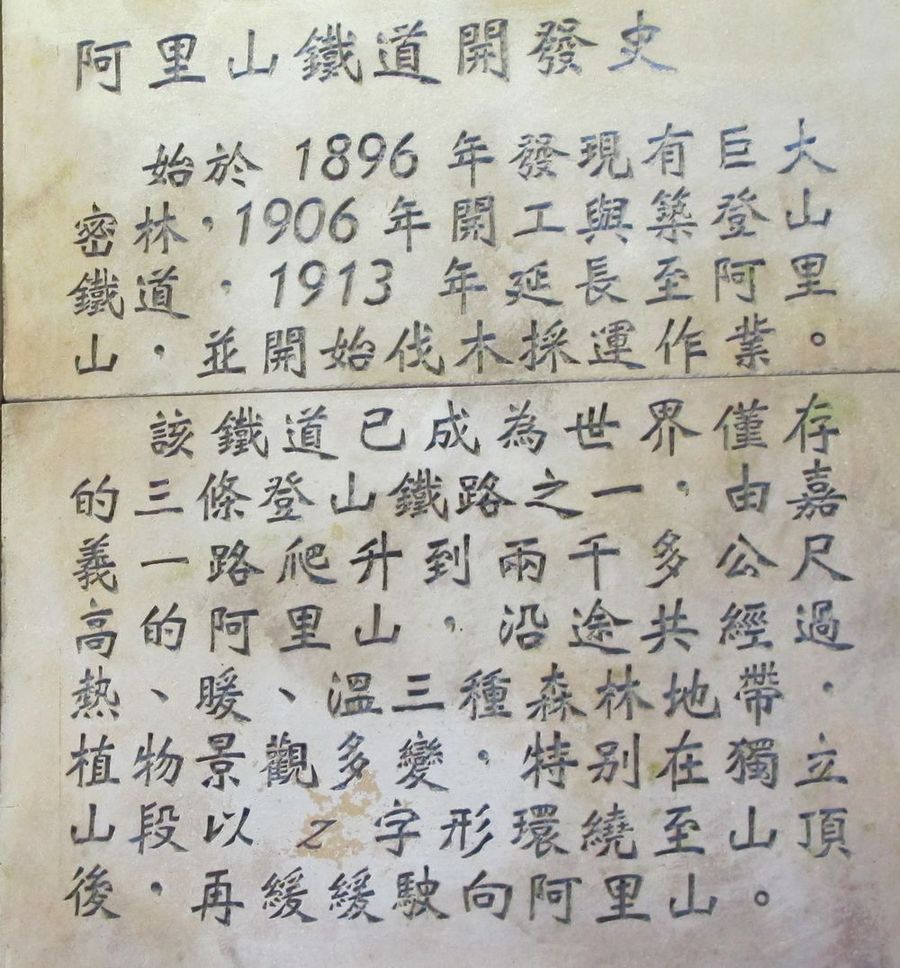 阿里山鐵道開發史
始於 1896 年發現有巨大
密林，1906 年開工與築登山
鐵道，1913 年延長至阿里
山，並開始伐木採運作業。
該鐵道已成為世界僅存
的三條登山鐵路之一，由嘉
義一路爬升到兩千多公尺
高的阿里山，沿途共經過
熱、暖、溫三種森林地帶，
植物景觀多變，特別在獨立
山段以 Z 字形環繞至山頂
後，再緩緩駛向阿里山。